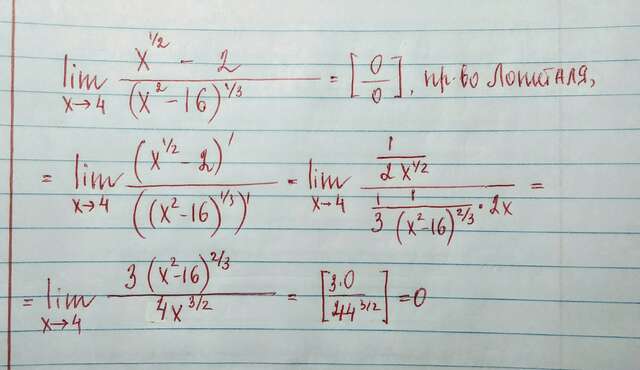 lim x→4 (x^(1/2) - 2)/((x² - 16)^(1/3)) = [0/0], пр-во Лопиталя,
= lim x→4 (x^(1/2) - 2)'/((x² - 16)^(1/3))' = lim x→4 (1/(2x^(1/2)))/(1/3 · 1/(x² - 16)^(2/3) · 2x) =
= lim x→4 (3(x² - 16)^(2/3))/(4x^(3/2)) = [3·0/(44^(3/2))] = 0